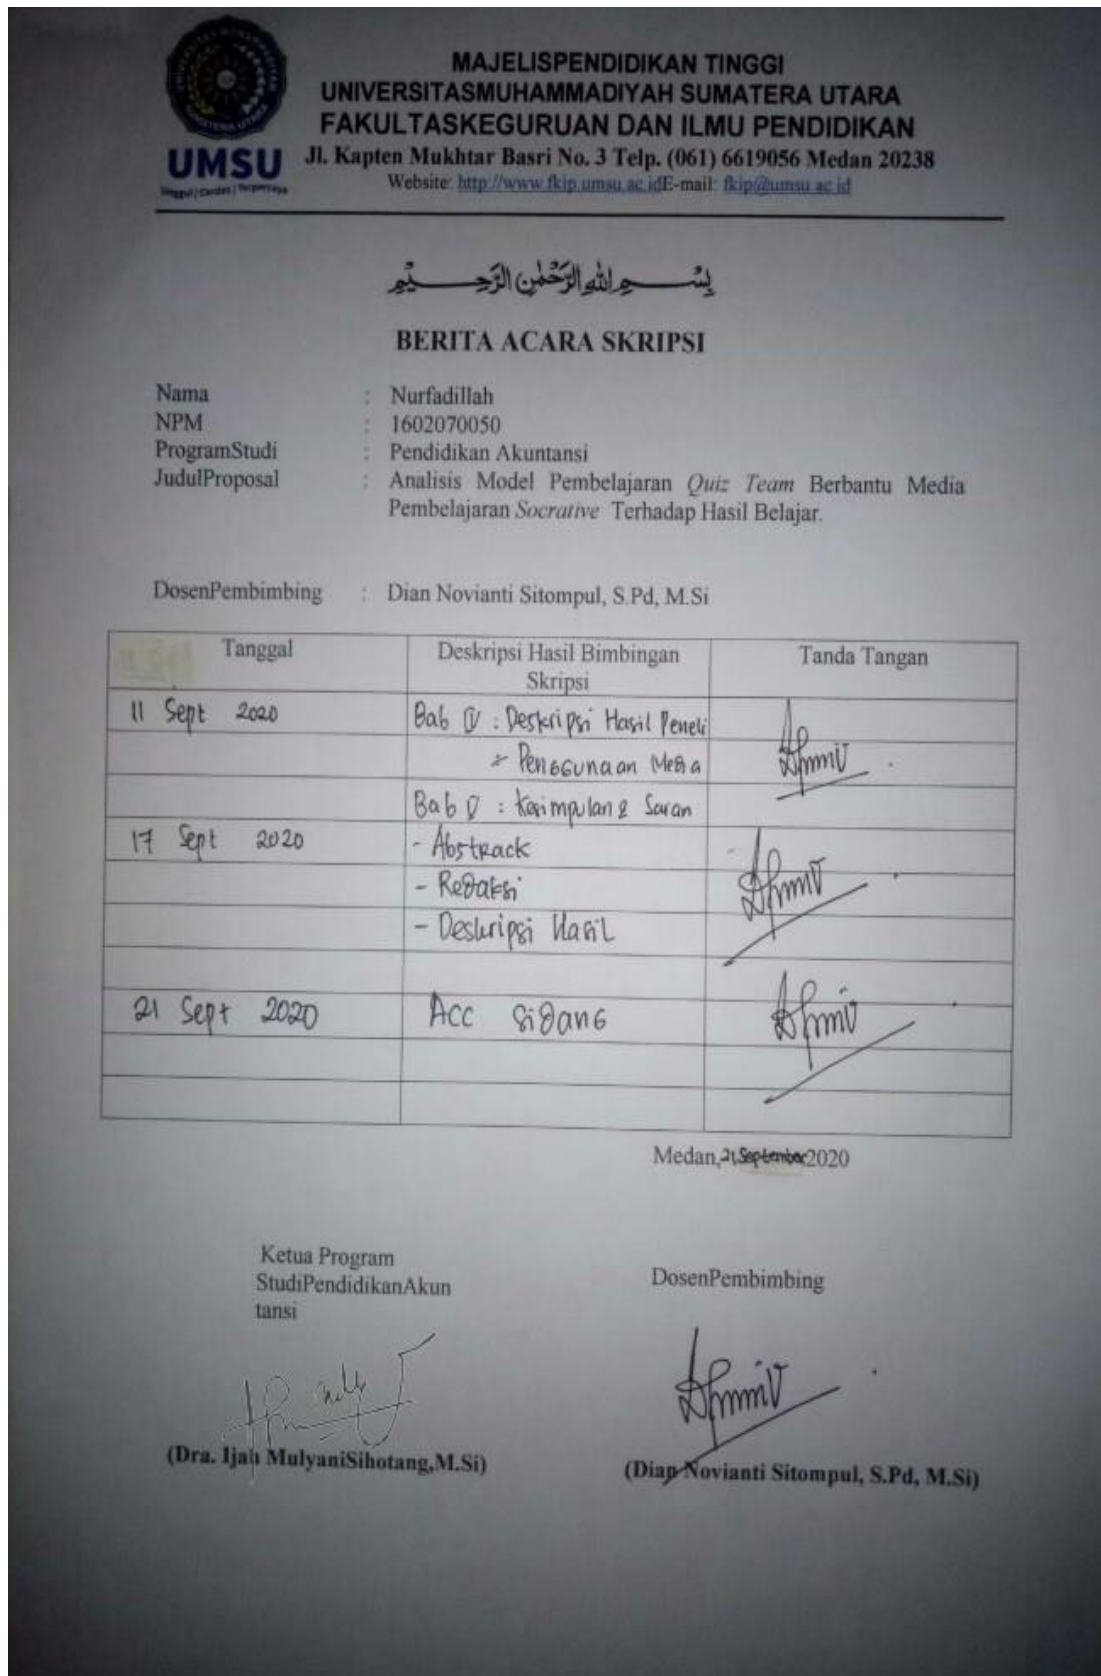 MAJELISPENDIDIKAN TINGGI
UNIVERSITASMUHAMMADIYAH SUMATERA UTARA
FAKULTASKEGURUAN DAN ILMU PENDIDIKAN
Jl. Kapten Mukhtar Basri No. 3 Telp. (061) 6619056 Medan 20238
Website: http://www.fkip.umsu.ac.idE-mail: fkip@umsu.ac.id
UMSU
Unggul | Cerdas | Terpercaya
بِسْمِ اللهِ الرَّحْمٰنِ الرَّحِيْمِ
BERITA ACARA SKRIPSI
Nama : Nurfadillah
NPM : 1602070050
ProgramStudi : Pendidikan Akuntansi
JudulProposal : Analisis Model Pembelajaran Quiz Team Berbantu Media
Pembelajaran Socrative Terhadap Hasil Belajar.
DosenPembimbing : Dian Novianti Sitompul, S.Pd, M.Si
Tanggal Deskripsi Hasil Bimbingan Tanda Tangan
Skripsi
11 Sept 2020 Bab IV : Deskripsi Hasil Peneli
Penggunaan Media
Bab V : Kesimpulan & Saran
17 Sept 2020 - Abstrack
- Redaksi
- Deskripsi Hasil
21 Sept 2020 Acc Sidang
Medan,21,September2020
Ketua Program
StudiPendidikanAkun
tansi
DosenPembimbing
(Dra. Ijah MulyaniSihotang,M.Si)
(Dian Novianti Sitompul, S.Pd, M.Si)